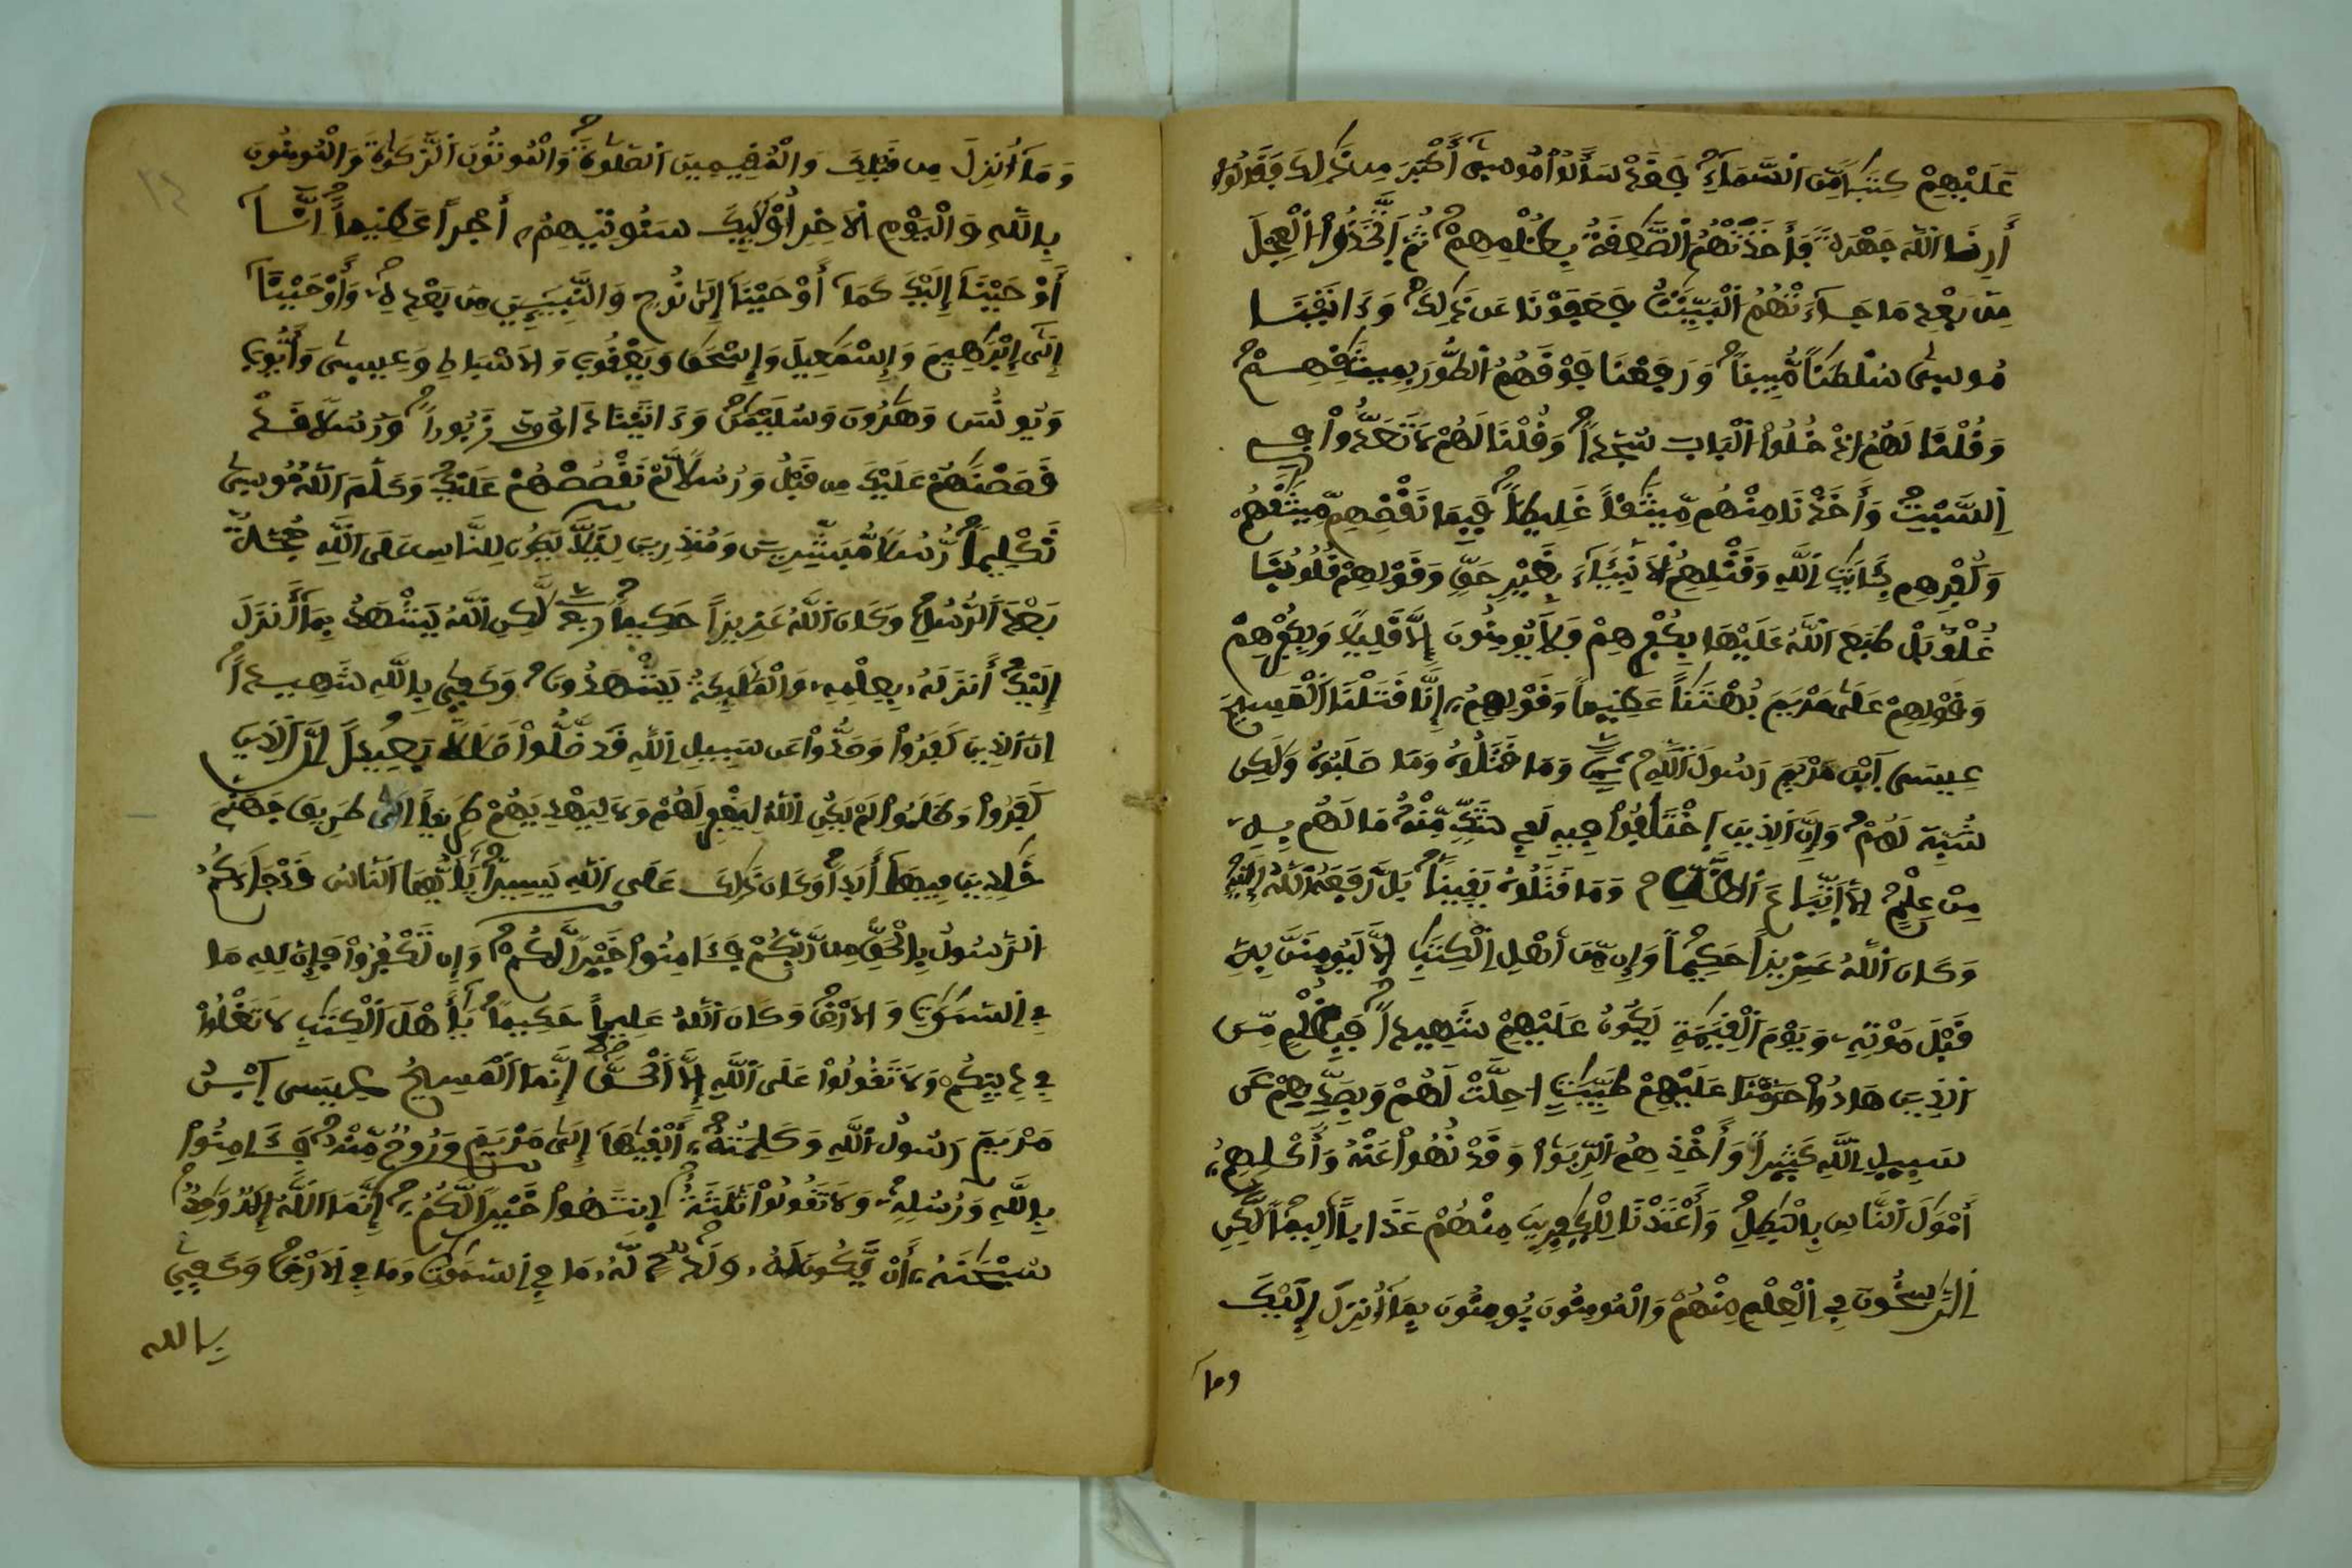 عَلَيْهِمْ كِتَٰباً مِّنَ اَلسَّمَآءِ فَقَدْ سَأَلُواْ مُوسىٰٓ أَكْبَرَ مِن ذَٰلِكَ فَقَالُوٓاْ
أَرِنَا اَللَّهَ جَهْرَةً فَأَخَذَتْهُمُ اُلصَّٰعِقَةُ بِظُلْمِهِمْ ثُمَّ اَتَّخَذُواْ اُلْعِجْلَ
مِنۢ بَعْدِ مَا جَآءَتْهُمُ اُلْبَيِّنَٰتُ فَعَفَوْنَا عَن ذَٰلِكَ وَءَاتَيْنَا
مُوسىٰ سُلْطَٰناً مُّبِيناً وَرَفَعْنَا فَوْقَهُمُ اُلطُّورَ بِمِيثَٰقِهِمْ
وَقُلْنَا لَهُمُ اُدْخُلُواْ اُلْبَابَ سُجَّداً وَقُلْنَا لَهُمْ لَا تَعَدُّواْ فِے
اِلسَّبْتِ وَأَخَذْنَا مِنْهُم مِّيثَٰقاً غَلِيظاً فَبِمَا نَقْضِهِم مِّيثَٰقَهُمْ
وَكُفْرِهِم بِـَٔايَٰتِ اِللَّهِ وَقَتْلِهِمُ اُلَانۢبِيَآءَ بِغَيْرِ حَقٍّ وَقَوْلِهِمْ قُلُوبُنَا
غُلْفٌۢ بَلْ طَبَعَ اَللَّهُ عَلَيْهَا بِكُفْرِهِمْ فَلَا يُومِنُونَ إِلَّا قَلِيلاً وَبِكُفْرِهِمْ
وَقَوْلِهِمْ عَلَىٰ مَرْيَمَ بُهْتَٰناً عَظِيماً وَقَوْلِهِمُۥٓ إِنَّا قَتَلْنَا اَلْمَسِيحَ
عِيسَى اَبْنَ مَرْيَمَ رَسُولَ اَللَّهِ وَمَا قَتَلُوهُ وَمَا صَلَبُوهُ وَلَٰكِن
شُبِّهَ لَهُمْ وَإِنَّ اَلذِينَ اَخْتَلَفُواْ فِيهِ لَفِے شَكٍّ مِّنْهُ مَا لَهُم بِهِۦ
مِنْ عِلْمٍ اِلَّا اَتِّبَاعَ اَلظَّنِّ وَمَا قَتَلُوهُ يَقِيناًۢ بَل رَّفَعَهُ اُللَّهُ إِلَيْهِ
وَكَانَ اَللَّهُ عَزِيزاً حَكِيماً وَإِن مِّنَ اَهْلِ اِلْكِتَٰبِ إِلَّا لَيُومِنَنَّ بِهِۦ
قَبْلَ مَوْتِهِۦ وَيَوْمَ اَلْقِيَٰمَةِ يَكُونُ عَلَيْهِمْ شَهِيداً فَبِظُلْمٍ مِّنَ
اَلذِينَ هَادُواْ حَرَّمْنَا عَلَيْهِمْ طَيِّبَٰتٍ اُحِلَّتْ لَهُمْ وَبِصَدِّهِمْ عَن
سَبِيلِ اِللَّهِ كَثِيراً وَأَخْذِهِمُ اُلرِّبَوٰاْ وَقَدْ نُهُواْ عَنْهُ وَأَكْلِهِمُۥٓ
أَمْوَٰلَ اَلنَّاسِ بِالْبَٰطِلِ وَأَعْتَدْنَا لِلْكَٰفِرِينَ مِنْهُمْ عَذَاباً اَلِيماً لَّٰكِنِ
اِلرَّٰسِخُونَ فِے اِلْعِلْمِ مِنْهُمْ وَالْمُومِنُونَ يُومِنُونَ بِمَآ أُنزِلَ إِلَيْكَ
وما
وَمَآ أُنزِلَ مِن قَبْلِكَ وَالْمُقِيمِينَ اَلصَّلَوٰةَ وَالْمُوتُونَ اَلزَّكَوٰةَ وَالْمُومِنُونَ
بِاللَّهِ وَالْيَوْمِ اِلَاخِرِ أُوْلَٰٓئِكَ سَنُوتِيهِمُۥٓ أَجْراً عَظِيماً اِنَّآ
أَوْحَيْنَآ إِلَيْكَ كَمَآ أَوْحَيْنَآ إِلَىٰ نُوحٍ وَالنَّبِيٓـِٕينَ مِنۢ بَعْدِهِۦ وَأَوْحَيْنَآ
إِلَىٰٓ إِبْرَٰهِيمَ وَإِسْمَٰعِيلَ وَإِسْحَٰقَ وَيَعْقُوبَ وَالَاسْبَاطِ وَعِيسىٰ وَأَيُّوبَ
وَيُونُسَ وَهَٰرُونَ وَسُلَيْمَٰنَ وَءَاتَيْنَا دَاوُۥدَ زَبُوراً وَرُسُلاً قَدْ
قَصَصْنَٰهُمْ عَلَيْكَ مِن قَبْلُ وَرُسُلاً لَّمْ نَقْصُصْهُمْ عَلَيْكَ وَكَلَّمَ اَللَّهُ مُوسىٰ
تَكْلِيماً رُّسُلاً مُّبَشِّرِينَ وَمُنذِرِينَ لِيَلَّا يَكُونَ لِلنَّاسِ عَلَى اَللَّهِ حُجَّةٌۢ
بَعْدَ اَلرُّسُلِ وَكَانَ اَللَّهُ عَزِيزاً حَكِيماً ربع لَّٰكِنِ اِللَّهُ يَشْهَدُ بِمَآ أَنزَلَ
إِلَيْكَ أَنزَلَهُۥ بِعِلْمِهِۦ وَالْمَلَٰٓئِكَةُ يَشْهَدُونَ وَكَفىٰ بِاللَّهِ شَهِيداً
اِنَّ اَلذِينَ كَفَرُواْ وَصَدُّواْ عَن سَبِيلِ اِللَّهِ قَد ضَّلُّواْ ضَلَٰلاً بَعِيداً اِنَّ اَلذِينَ
كَفَرُواْ وَظَلَمُواْ لَمْ يَكُنِ اِللَّهُ لِيَغْفِرَ لَهُمْ وَلَا لِيَهْدِيَهُمْ طَرِيقاً اِلَّا طَرِيقَ جَهَنَّمَ
خَٰلِدِينَ فِيهَآ أَبَداً وَكَانَ ذَٰلِكَ عَلَى اَللَّهِ يَسِيراً يَٰٓأَيُّهَا اَلنَّاسُ قَدْ جَآءَكُمُ
اُلرَّسُولُ بِالْحَقِّ مِن رَّبِّكُمْ فَـَٔامِنُواْ خَيْراً لَّكُمْ وَإِن تَكْفُرُواْ فَإِنَّ لِلهِ مَا
فِے اِلسَّمَٰوَٰتِ وَالَارْضِ وَكَانَ اَللَّهُ عَلِيماً حَكِيماً يَٰٓأَهْلَ اَلْكِتَٰبِ لَا تَغْلُواْ
فِے دِينِكُمْ وَلَا تَقُولُواْ عَلَى اَللَّهِ إِلَّا اَلْحَقَّ إِنَّمَا اَلْمَسِيحُ عِيسَى اَبْنُ
مَرْيَمَ رَسُولُ اُللَّهِ وَكَلِمَتُهُۥٓ أَلْقَيٰهَآ إِلَىٰ مَرْيَمَ وَرُوحٌ مِّنْهُ فَـَٔامِنُواْ
بِاللَّهِ وَرُسُلِهِۦ وَلَا تَقُولُواْ ثَلَٰثَةٌ اِنتَهُواْ خَيْراً لَّكُمُۥٓ إِنَّمَا اَللَّهُ إِلَٰهٌ وَٰحِدٌ
سُبْحَٰنَهُۥٓ أَنْ يَّكُونَ لَهُۥ وَلَدٌ لَّهُۥ مَا فِے اِلسَّمَٰوَٰتِ وَمَا فِے اِلَارْضِ وَكَفىٰ
بالله